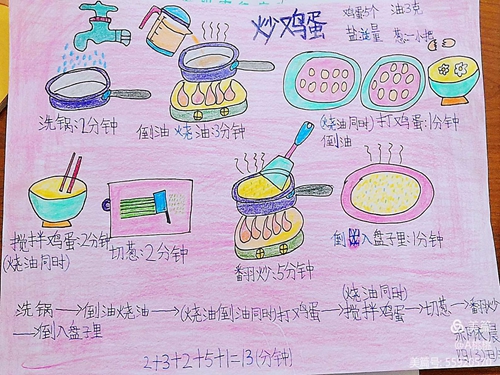 炒鸡蛋
鸡蛋5个 油3克
盐适量 葱一小把
洗锅:2分钟
倒油 烧油:3分钟
(烧油同时)打鸡蛋:1分钟
倒油
搅拌鸡蛋:2分钟
(烧油同时)
切葱:2分钟
翻炒:5分钟
倒入盘子里:1分钟
(烧油同时)
洗锅→倒油烧油→(烧油倒油同时)打鸡蛋→搅拌鸡蛋→切葱→翻炒
→倒入盘子里
2+3+2+5+1=13(分钟)